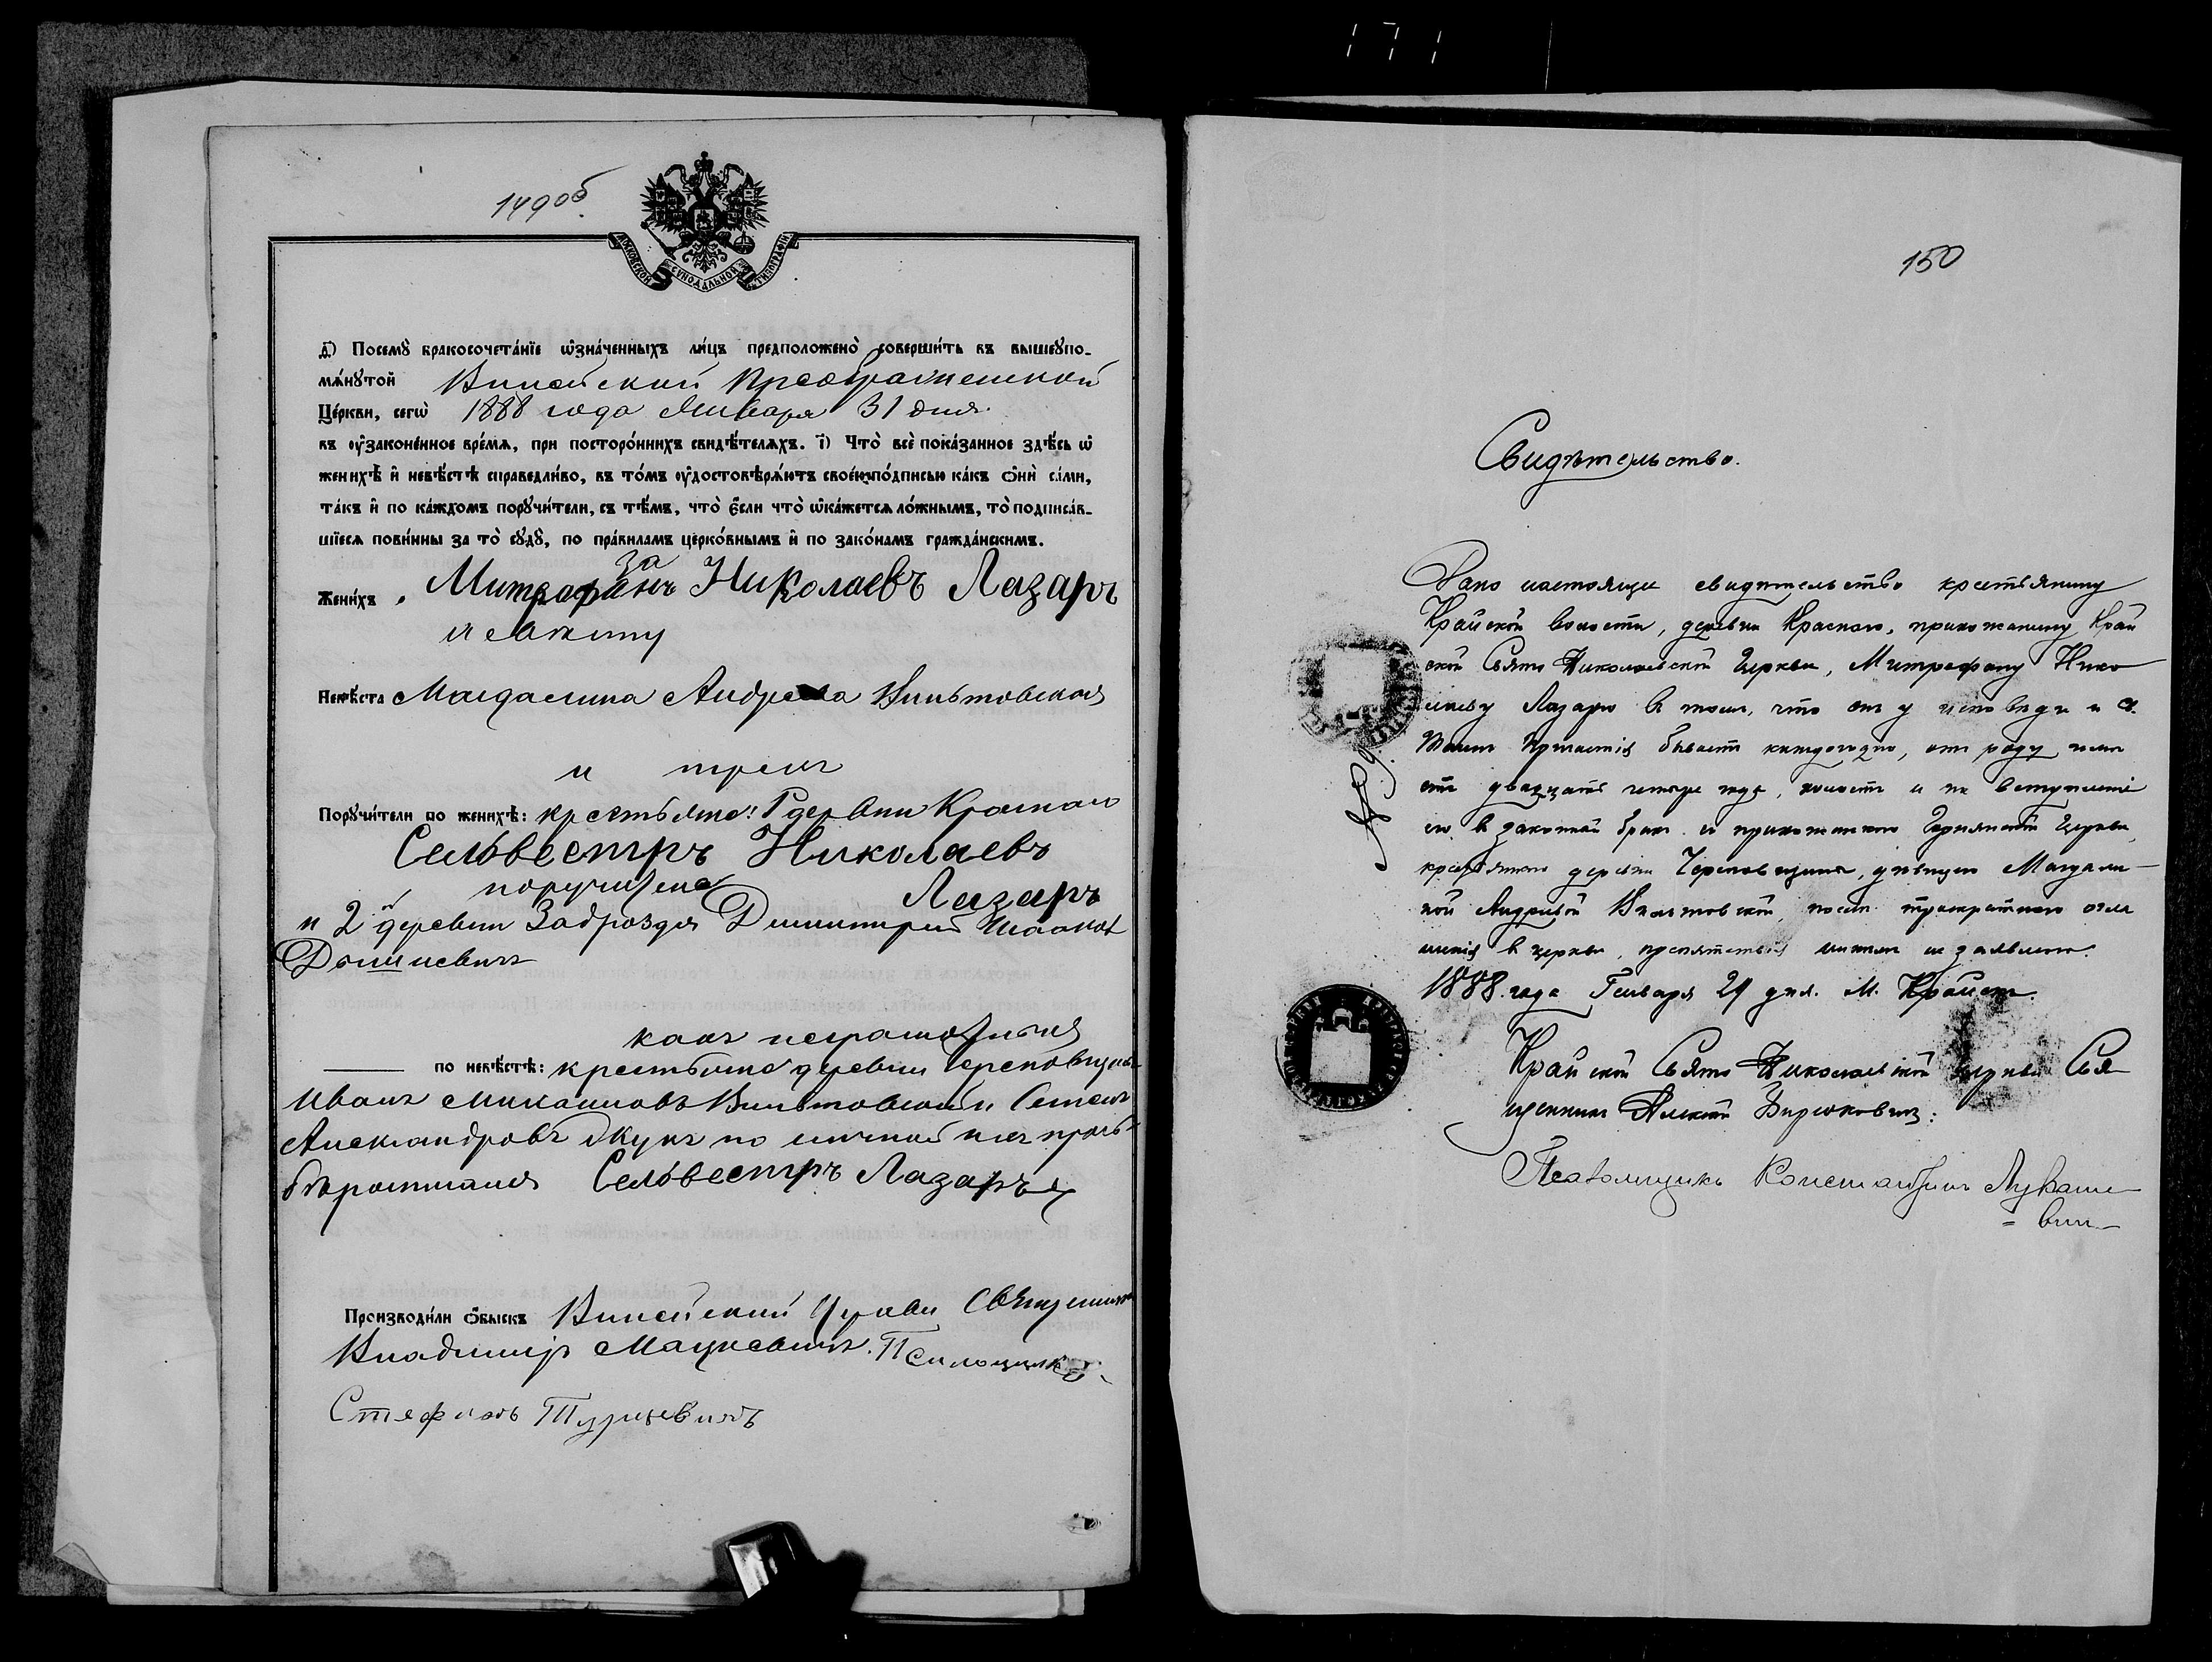 149 об.
МОСКОВСКОЙ СѴНОДАЛЬНОЙ ТИПОГРАФІИ
д҃) Посемꙋ̀ бракосочета́нїе ѡ҆зна́ченныхъ ли́цъ предположено̀ соверши́ть въ вышеꙋпо-
мѧ́нꙋтой Вилейской Преображенской
Це́ркви, сегѡ̀ 1888 года Января 31 дня
въ оу҆зако́ненное вре́мѧ, при посторо́ннихъ свидѣ́телѧхъ. і҃) Что̀ всѐ пока́занное здѣ́сь ѡ҆
женихѣ̀ и҆ невѣ́стѣ справедли́во, въ то́мъ оу҆достовѣрѧ́ютъ свое́ю по́дписью ка́къ ѻ҆нѝ са́ми,
та́къ и҆ по ка́ждомъ порꙋчи́тели, съ тѣ́мъ, что̀ є҆́сли что̀ ѡ҆ка́жетсѧ ло́жнымъ, то̀ подписа́в-
шїесѧ пови́нны за то̀ сꙋдꙋ̀, по пра́виламъ церко́внымъ и҆ по зако́намъ гражда́нскимъ.
за
Жени́хъ Митрофанъ Николаевъ Лазарь
Невѣ́ста Магдалина Андреева
и трехъ
Порꙋчи́тели по женихѣ̀: крестьяне: 1 деревни Краснаго
Селъвестръ Николаевъ
Лазаръ
и 2 деревни Заброздя Димитрий
какъ неграмотныя
по невѣ́стѣ: крестьяне деревни
Иванъ Михаиловъ и Семенъ
Александровъ по личной ихъ прозь-
бѣ росписался Селъвестръ Лазаръ
Производи́ли ѻ҆́быскъ Вилейский Церкви Священникъ
Владимиръ Мацкевичъ. Псаломщикъ
Стефанъ Турцевичъ
150
Свидѣтельство.
Дано настоящее свидѣтельство крестьянину
Крайской волости, деревни Краснаго, прихожанину Край
ской Свято Николаевской Церкви, Митрофану Нико
лаеву Лазарю в томъ, что онъ у исповѣди и Св.
Таинъ Причастія бываетъ каждогодно, отъ роду имѣ
етъ двадцать четыре года, холостъ и на вступленіе
его в законный бракъ съ прихожанкою Церкви,
крестьянкою деревни, дѣвицею Магдали-
ной Андреевой, послѣ троекратнаго огла
шенія в церкви, препятствій никѣмъ не заявлено.
1888 года Генваря 29 дня. М. Крайскъ.
Крайской Свято Николаевской Церкви Свя
щенникъ Алексѣй Бирюковичъ:
Псаломщикъ Константинъ Лукаше
= вичъ